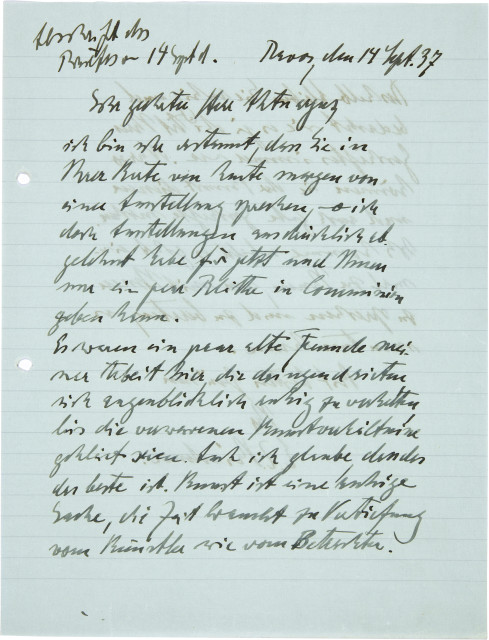 Abschrift des
Briefes v. 14 Sept.
Davos, den 14 Sept. 37
Sehr geehrter Herr
ich bin sehr erstaunt, dass Sie in
Ihrer Karte von heute morgen von
einer Ausstellung sprechen, wo ich
doch Ausstellungen ausdrücklich ab
gelehnt habe für jetzt und Ihnen
nur ein paar Blätter in Commission
geben kann.
Es waren ein paar alte Freunde mei
ner Arbeit hier, die dringend rieten
sich augenblicklich ruhig zu verhalten
bis die verworrenen Kunstverhältnisse
geklärt seien. Auch ich glaube dass das
das beste ist. Kunst ist eine ruhige
Sache, die Zeit braucht zu Vertiefung
vom Künstler wie vom Betrachter.